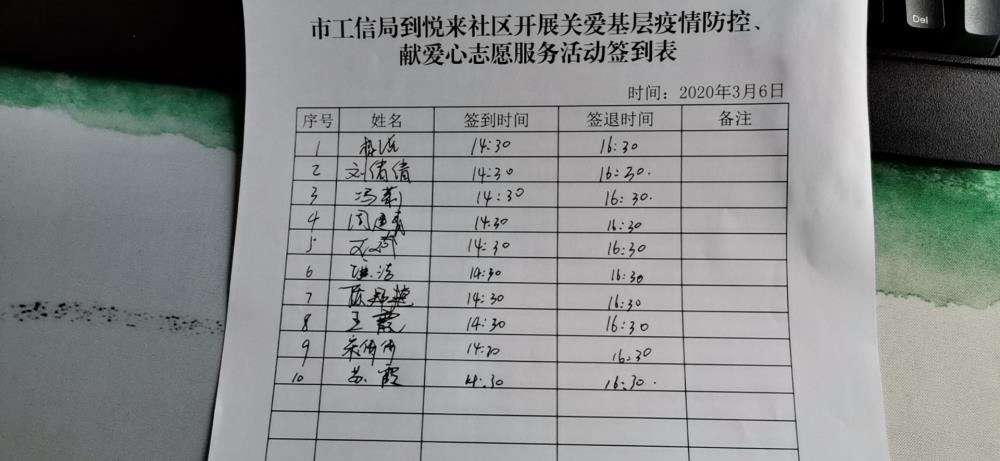 Del
市工信局到悦来社区开展关爱基层疫情防控、
献爱心志愿服务活动签到表
时间：2020年3月6日
序号 姓名 签到时间 签退时间 备注
1 14:30 16:30
2 刘倩倩 14:30 16:30.
3 冯莉 14:30 16:30.
4 14:30 16:30
5 14:30 16:30
6 14:30 16:30
7 14:30 16:30
8 王霞 14:30 16:30
9 14:30 16:30
10 苏霞 14:30 16:30.